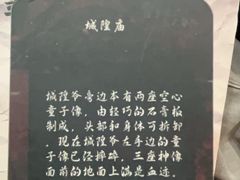 城隍庙
城隍爷旁边本有两座空心
童子像，由轻巧的石膏报
制成，头部和身体可折卸
．现在城隍爷左手边的童
子像已经摔碎，三座神像
面前的地面上满是血迹．